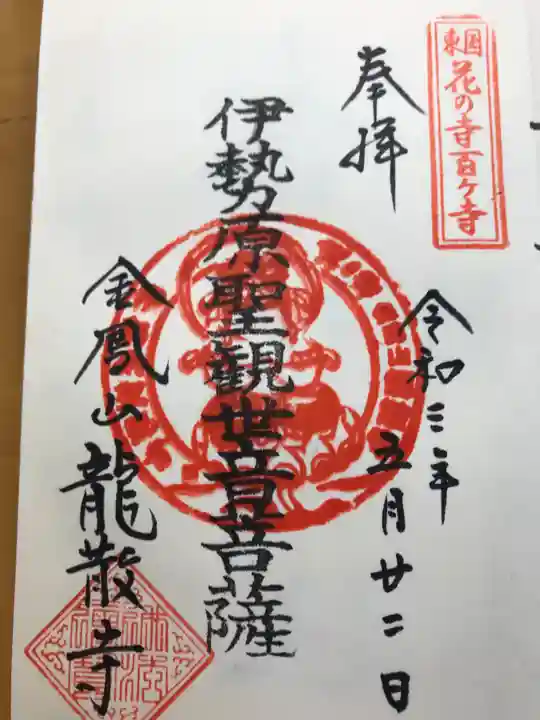 東国
花の寺百ヶ寺
奉拝
令和三年五月廿二日
伊勢原聖観世音菩薩
金鳳山龍散寺